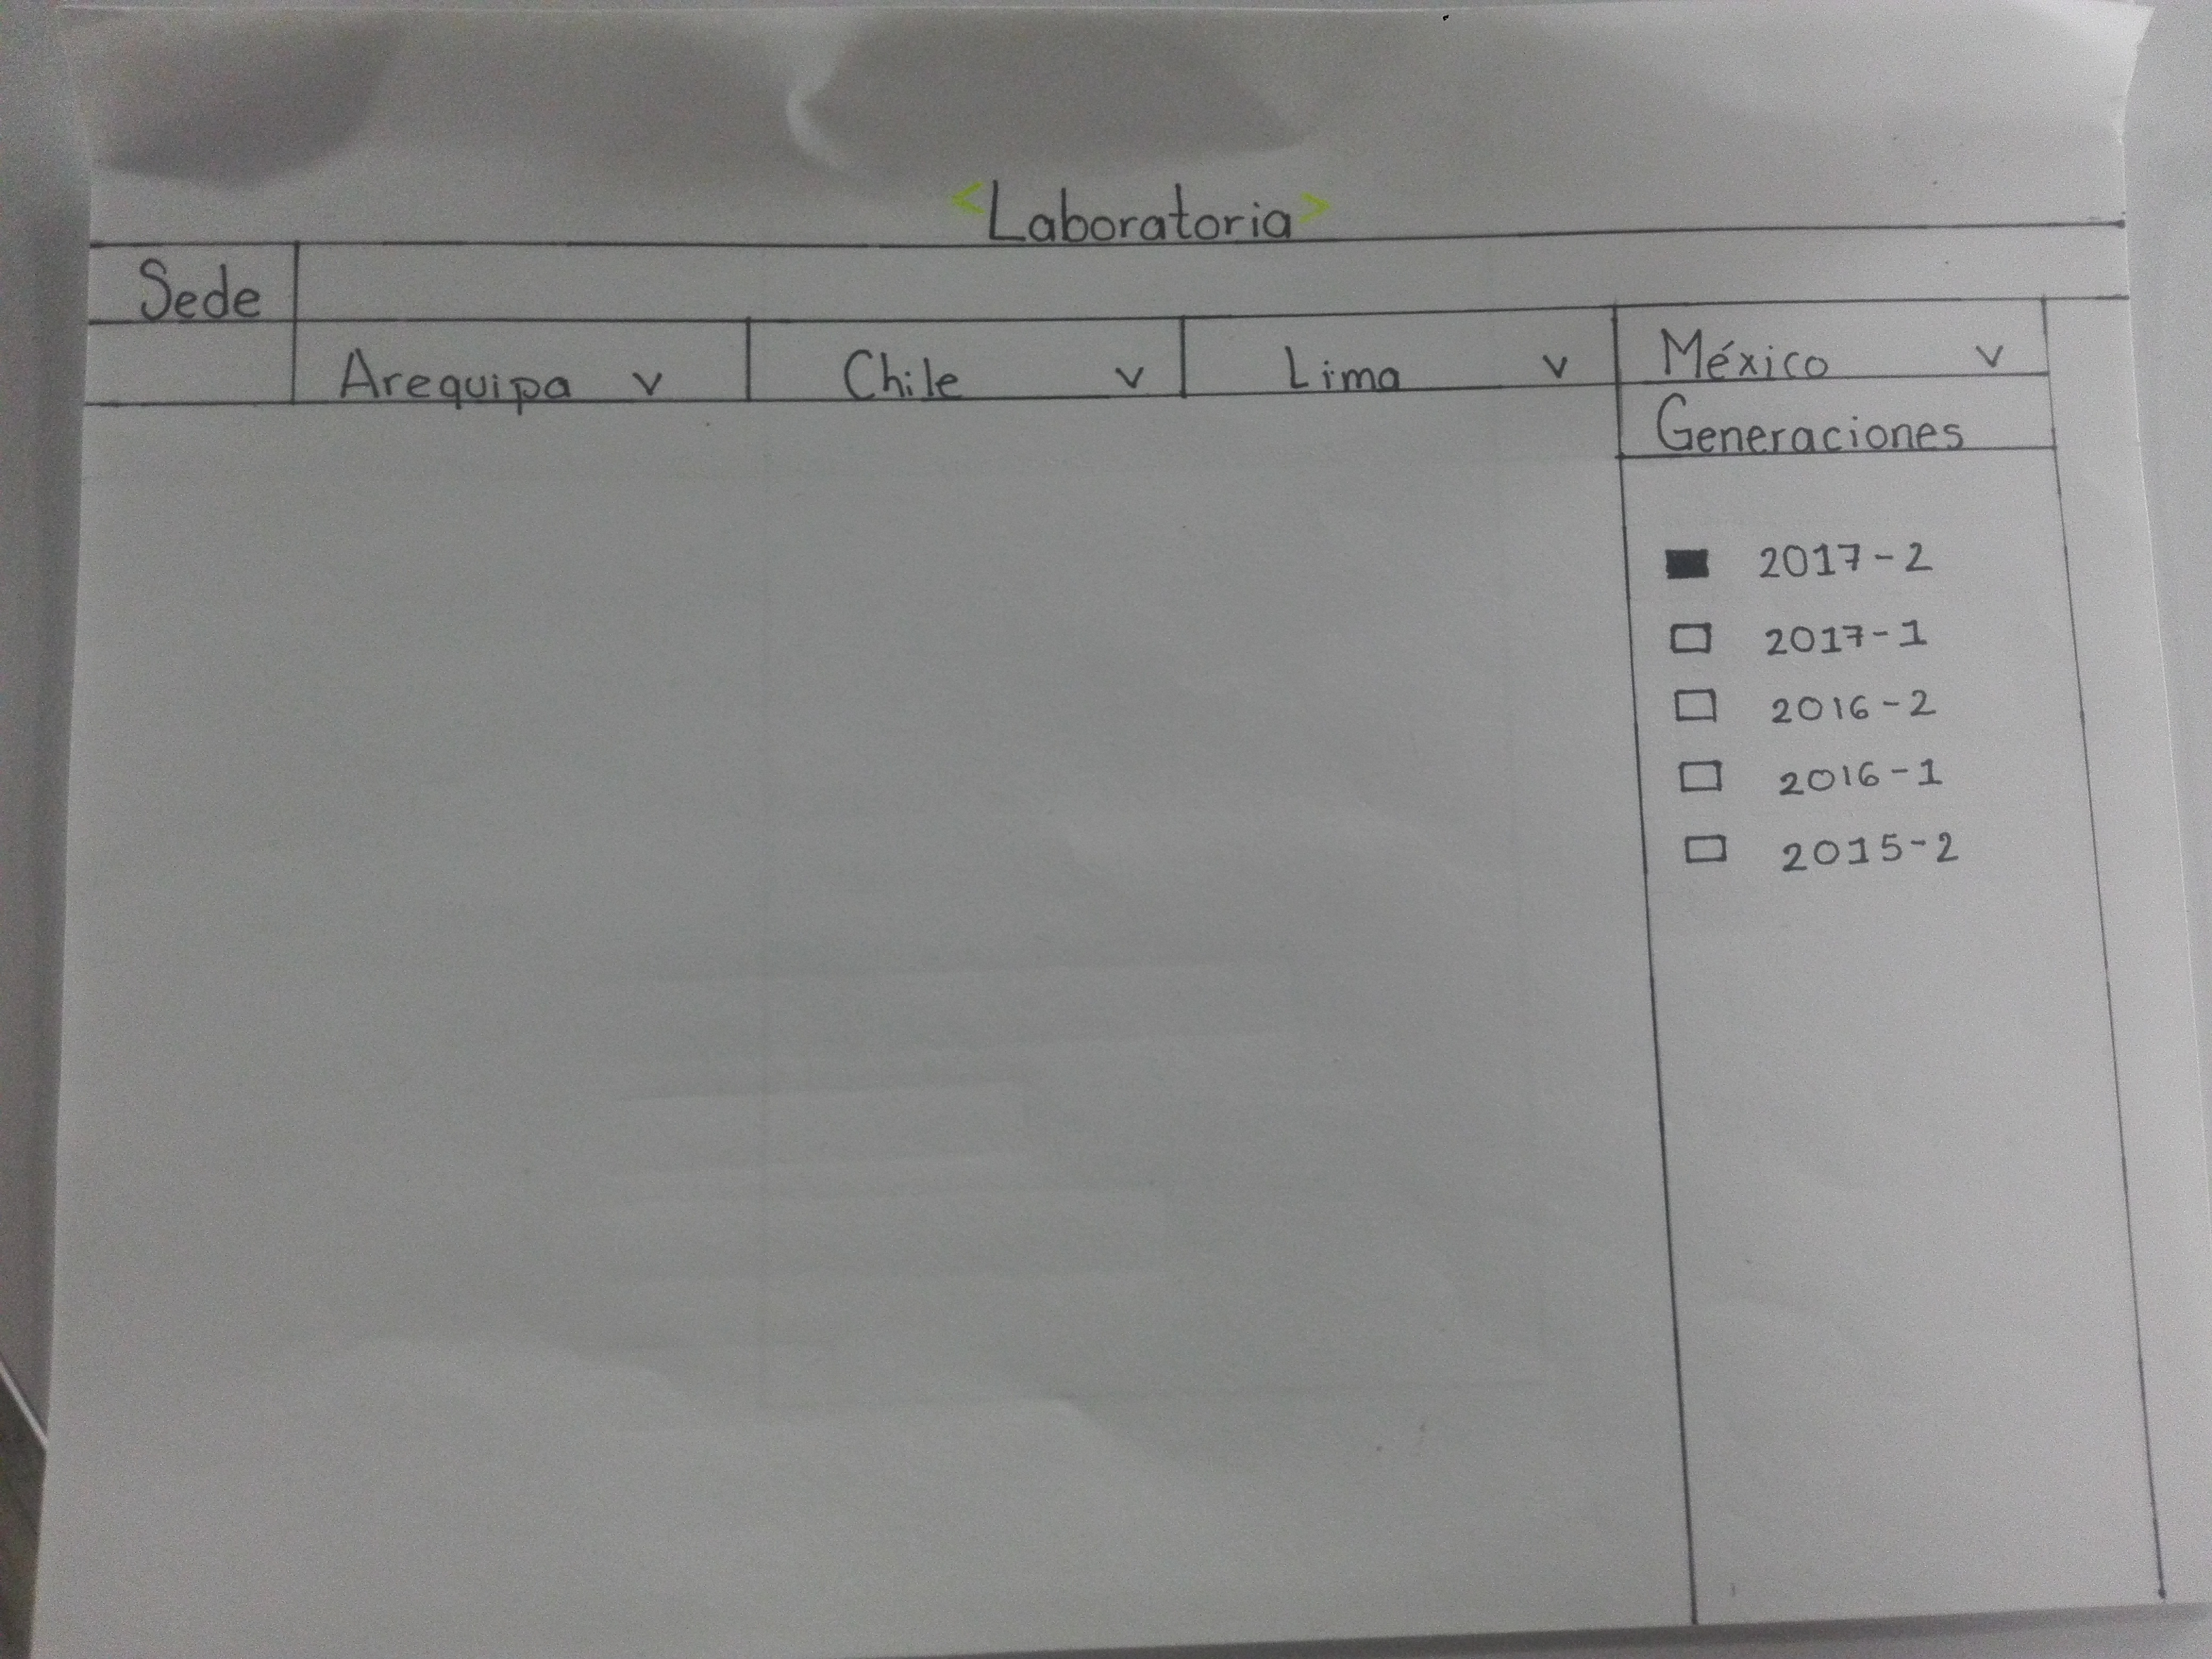 <Laboratoria>
Sede
Arequipa v Chile v Lima v México v
Generaciones
2017-2
2017-1
2016-2
2016-1
2015-2